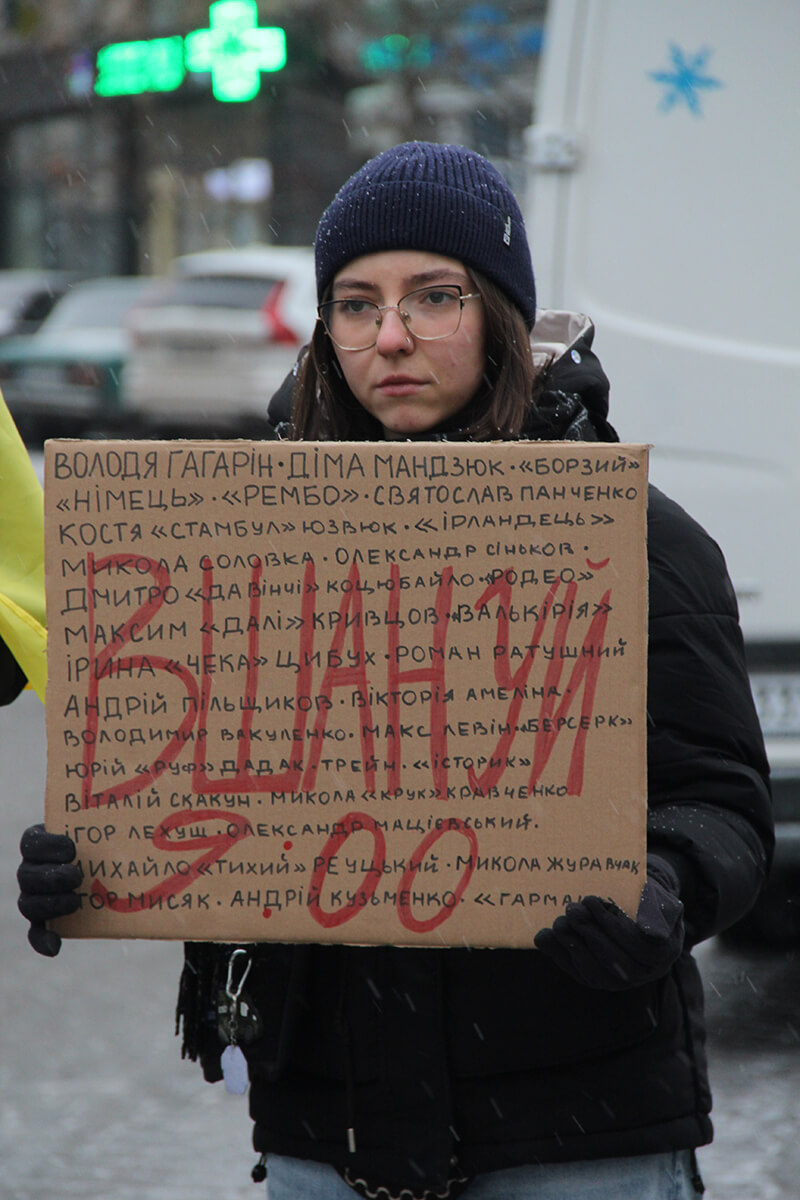 ВОЛОДЯ ГАГАРІН · ДІМА МАНДЗЮК · «БОРЗИЙ»
«НІМЕЦЬ» · «РЕМБО» · СВЯТОСЛАВ ПАНЧЕНКО
КОСТЯ «СТАМБУЛ» ЮЗВЮК · «ІРЛАНДЕЦЬ»
МИКОЛА СОЛОВКА · ОЛЕКСАНДР СІНЬКОВ ·
ДМИТРО «ДА ВІНЧІ» КОЦЮБАЙЛО · «РОДЕО»
МАКСИМ «ДАЛІ» КРИВЦОВ · «ВАЛЬКІРІЯ»
ІРИНА «ЧЕКА» ЦИБУХ · РОМАН РАТУШНИЙ
АНДРІЙ ПІЛЬЩИКОВ · ВІКТОРІЯ АМЕЛІНА ·
ВОЛОДИМИР ВАКУЛЕНКО · МАКС ЛЕВІН · «БЕРСЕРК»
ЮРІЙ «РУФ» ДАДАК · ТРЕЙН · «ІСТОРИК»
ВІТАЛІЙ СКАКУН · МИКОЛА «КРУК» КРАВЧЕНКО
ІГОР ЛЕХУЩ · ОЛЕКСАНДР МАЦІЄВСЬКИЙ ·
МИХАЙЛО «ТИХИЙ» РЕУЦЬКИЙ · МИКОЛА ЖУРАВЧАК
МИСЯК · АНДРІЙ КУЗЬМЕНКО ·
ВШАНУЙ
9:00